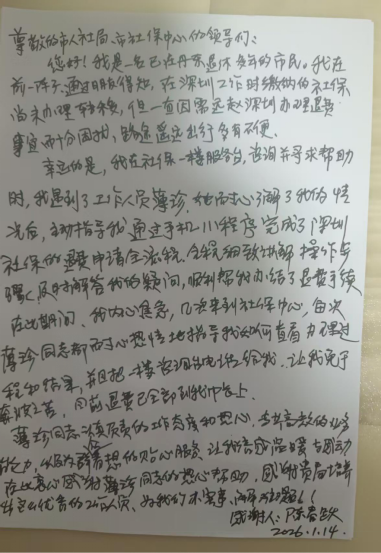 尊敬的市人社局、市社保中心的领导们：
您好！我是一名已在丹东退休多年的市民。我在
前一阵子通过朋友得知，在深圳工作时缴纳的社保
尚未办理转移，但一直因需远赴深圳办理退费
事宜而十分困扰，路途遥远出行多有不便。
幸运的是，我在社保一楼服务台，咨询并寻求帮助
时，我遇到了工作人员薄珍，她耐心了解了我的情
况后，主动指导我通过手机小程序完成了深圳
社保的退费申请全流程，全程细致讲解操作步
骤，及时解答我的疑问，顺利帮我办结了退费手续
在此期间，我内心焦急，几次来到社保中心，每次
薄珍同志都耐心热情地指导我如何查看办理过
程和结果，并且把一楼咨询电话给我，让我免于
奔波之苦，目前退费已全部到我账上。
薄珍同志认真负责的工作态度和热心，专业高效的业务
能力，以及为群着想的贴心服务，让我倍感温暖与感动
在此衷心感谢薄珍同志的热心帮助，感谢贵局培养
出这么优秀的工作人员，为我们办实事、解决难题！
感谢人：陈春
2026.1.14.